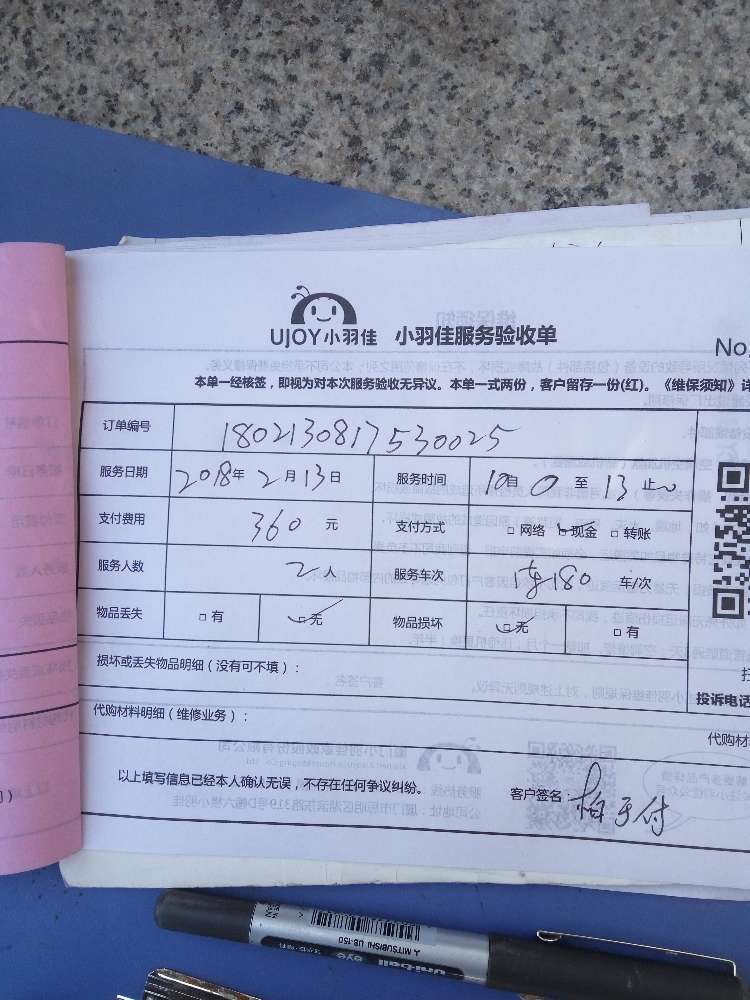 UJOY小羽佳 小羽佳服务验收单
No.
本单一经核签，即视为对本次服务验收无异议。本单一式两份，客户留存一份(红)。《维保须知》详
订单编号 1802130817530025
服务日期 2018年2月13日 服务时间 10 0 至 13 止
支付费用 360 元 支付方式 □网络 □现金 □转账
服务人数 2人 服务车次 1车180 车/次
物品丢失 □有 □无 物品损坏 □无 □有
损坏或丢失物品明细（没有可不填）：
投诉电话
代购材料明细（维修业务）：
代购材
以上填写信息已经本人确认无误，不存在任何争议纠纷。 客户签名：
MITSUBISHI UB-150
uni-ball eye